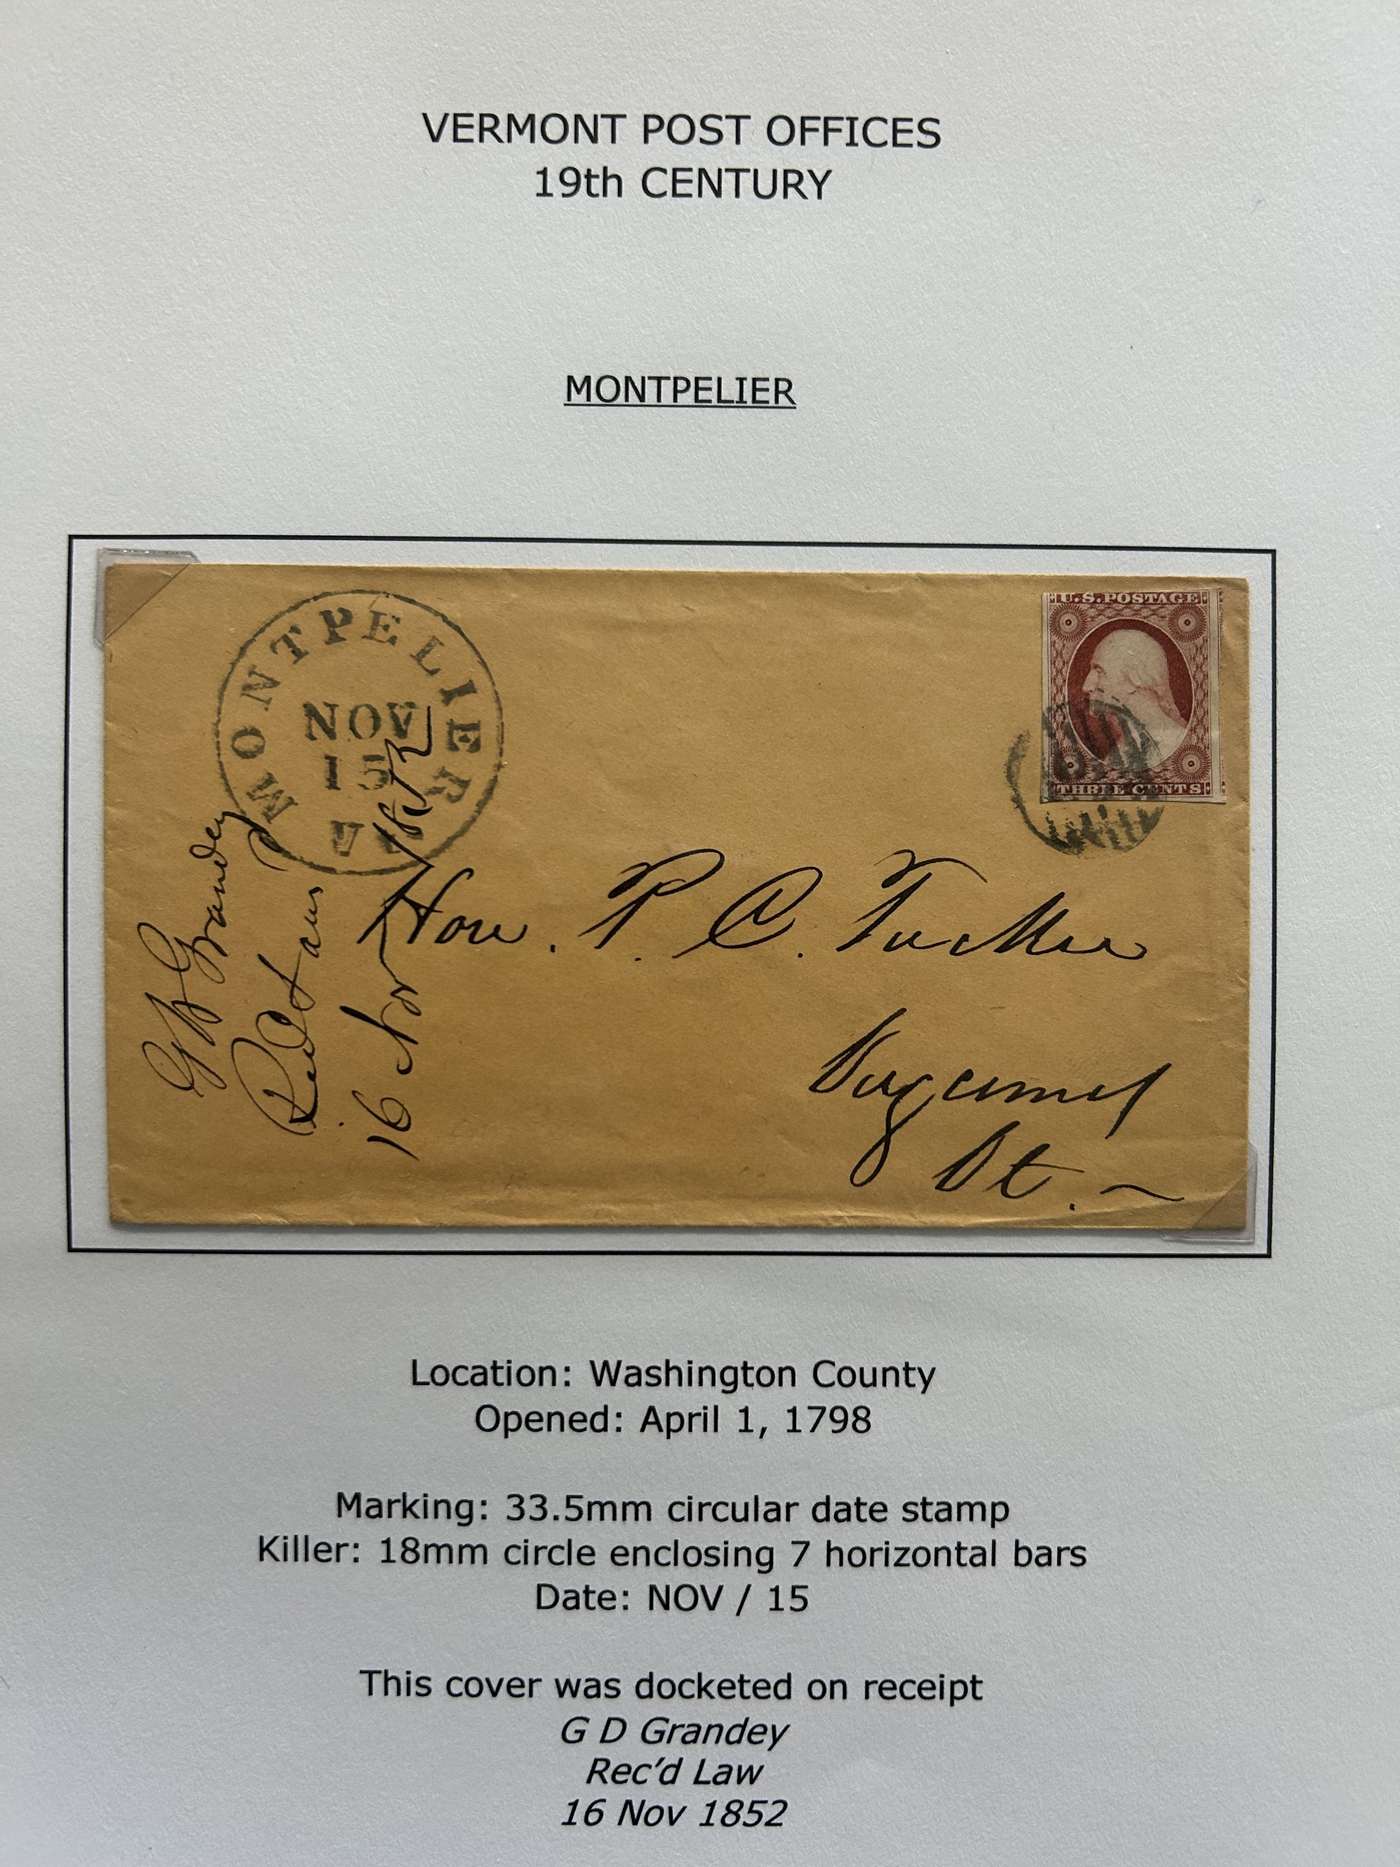 VERMONT POST OFFICES
19th CENTURY
MONTPELIER
MONTPELIER
NOV
15
Vt
U.S. POSTAGE
THREE CENTS
Hon. P. C. Tucker
Vergennes
Vt.
G D Grandey
Rec'd
16 Nov 1852
Location: Washington County
Opened: April 1, 1798
Marking: 33.5mm circular date stamp
Killer: 18mm circle enclosing 7 horizontal bars
Date: NOV / 15
This cover was docketed on receipt
G D Grandey
Rec'd Law
16 Nov 1852